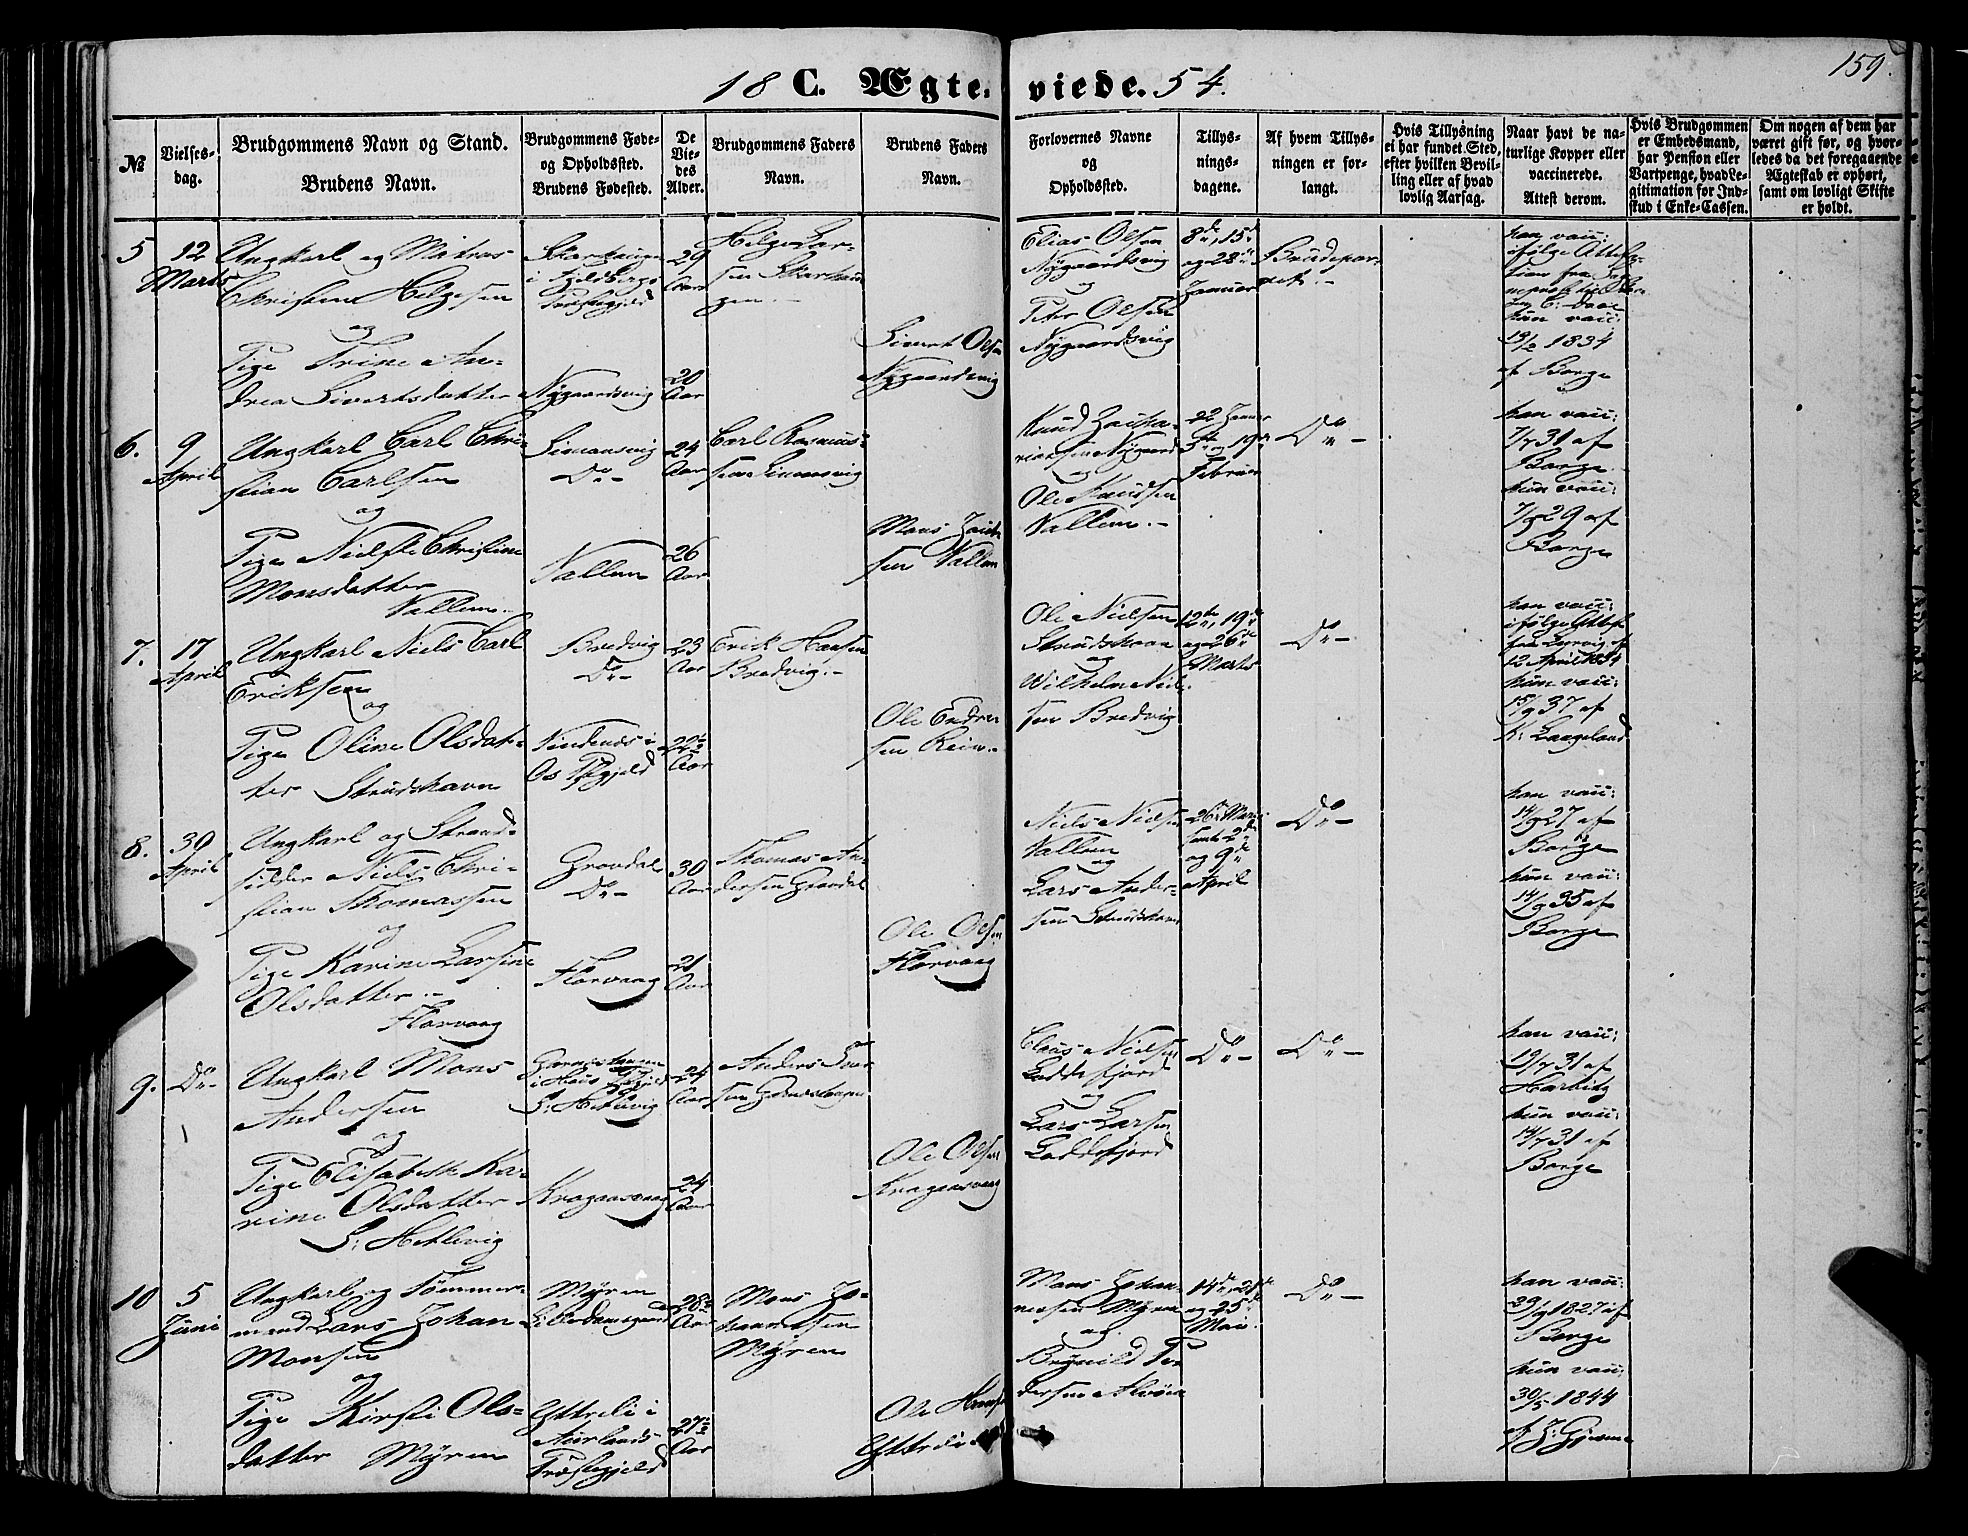 159.
18 C. Ægte- viede. 54.
№
Vielses-
dag.
Brudgommens Navn og Stand.
Brudens Navn.
Brudgommens Føde-
og Opholdssted.
Brudens Fødested.
De
Vie-
des
Alder.
Brudgommens Faders
Navn.
Brudens Faders
Navn.
Forlovernes Navne
og
Opholdssted.
Tillys-
nings-
dagene.
Af hvem Tillys-
ningen er for-
langt.
Hvis Tillysning
ei har fundet Sted,
efter hvilken Bevil-
ling eller af hvad
lovlig Aarsag.
Naar havt de na-
turlige Kopper eller
vaccinerede.
Attest derom.
Hvis Brudgommen
er Embedsmand,
har Pension eller
Vartpenge, hvad Le-
gitimation for Ind-
skud i Enke-Cassen.
Om nogen af dem har
været gift før, og hvor-
ledes da det foregaaende
Ægteskab er ophørt,
samt om lovligt Skifte
er holdt.
5
12
Marts
Ungkarl og Matros
Christen Helgesen
og
Pige Trine An-
drea Sivertsdatter
Præstegjeld
Nygaardsvig
29
Aar
20
Aar
Helge Lar-
sen
Sivert Olsen
Nygaardsvig
Elias Olsen
Nygaardsvig
og
Peter Olsen
Nygaardsvig
8de, 15de
og 22de
Januar
Brudepar-
ret.
han vacc:
ifølge
hun vacc:
19/2 1834
af Borge
6.
9
April
Ungkarl Carl Chri-
stian Carlsen
og
Pige Nielske Christine
Monsdatter
Vallem.
Simansvig
Do
Vallem
24
Aar
26
Aar
Carl Rasmus-
sen Simansvig
Mons
sen Vallem
Knud Zacha-
riasen Nygaard
og
Ole Knudsen
Vallem.
22 Januar
5te og 19de
Februar
Do
han vacc:
7/7 31 af
Borge.
hun vacc:
7/8 29 af
Borge
7.
17
April
Ungkarl Niels Carl
Eriksen
og
Pige Oline Olsdat-
ter Strudshavn
Bredvig
Do
Vindenes i
Os Pgjeld
23
Aar
22½
Aar
Erik Hansen
Bredvig.
Ole Endre-
sen
Ole Nielsen
Strudshavn
og
Wilhelm Niel-
sen Bredvig
12te, 19de
og 26de
Marts
Do
han vacc:
ifølge Attest
12 April 1854
hun vacc:
15/9 37 af
K: Laageland
8.
30
April
Ungkarl og Strand-
sidder Niels Chri-
stian Thomassen
og
Pige Karine Larsine
Olsdatter.
Florvaag
Gravdal
Do
Florvaag
30
Aar
21
Aar
Thomas An-
dersen Gravdal
Ole Olsen
Florvaag
Niels Nielsen
Vallem
og
Lars Ander-
sen Strudshavn
26de Marts
samt 2den
og 9de
April
Do
han vacc:
14/9 27 af
Borge
hun vacc:
14/9 35 af
Borge
9.
Do
Ungkarl Mons
Andersen
og
Pige Elisabeth Ka-
rine Olsdatter
S: Hetlevig
i Haus Pgjeld
S: Hetlevig
Kragaasvaag
24
Aar
24
Aar
Anders
sen
Ole Olsen
Kragaasvaag
Claus Nielsen
Loddefjord
og
Lars Larsen
Loddefjord
Do
Do
han vacc:
19/7 31 af
Harbitz
hun vacc:
14/7 31 af
Borge
10
5
Juni
Ungkarl og Tømmer-
mand Lars Johan
Monsen
og
Pige Kirsti Ols-
datter Myren
Myren
Ytreli i
Aurlands
Præstegjeld
28½
Aar
27½
Aar
Mons Jo-
hannesen
Myren
Ole Hansen
Ytreli
Mons Johan-
nesen Myren
og
Brynild Pe-
dersen Alvøen
14de, 21de
og 25de
Mai.
Do
han vacc:
29/9 1827 af
Borge
hun vacc:
30/5 1844
af J: Gjerme